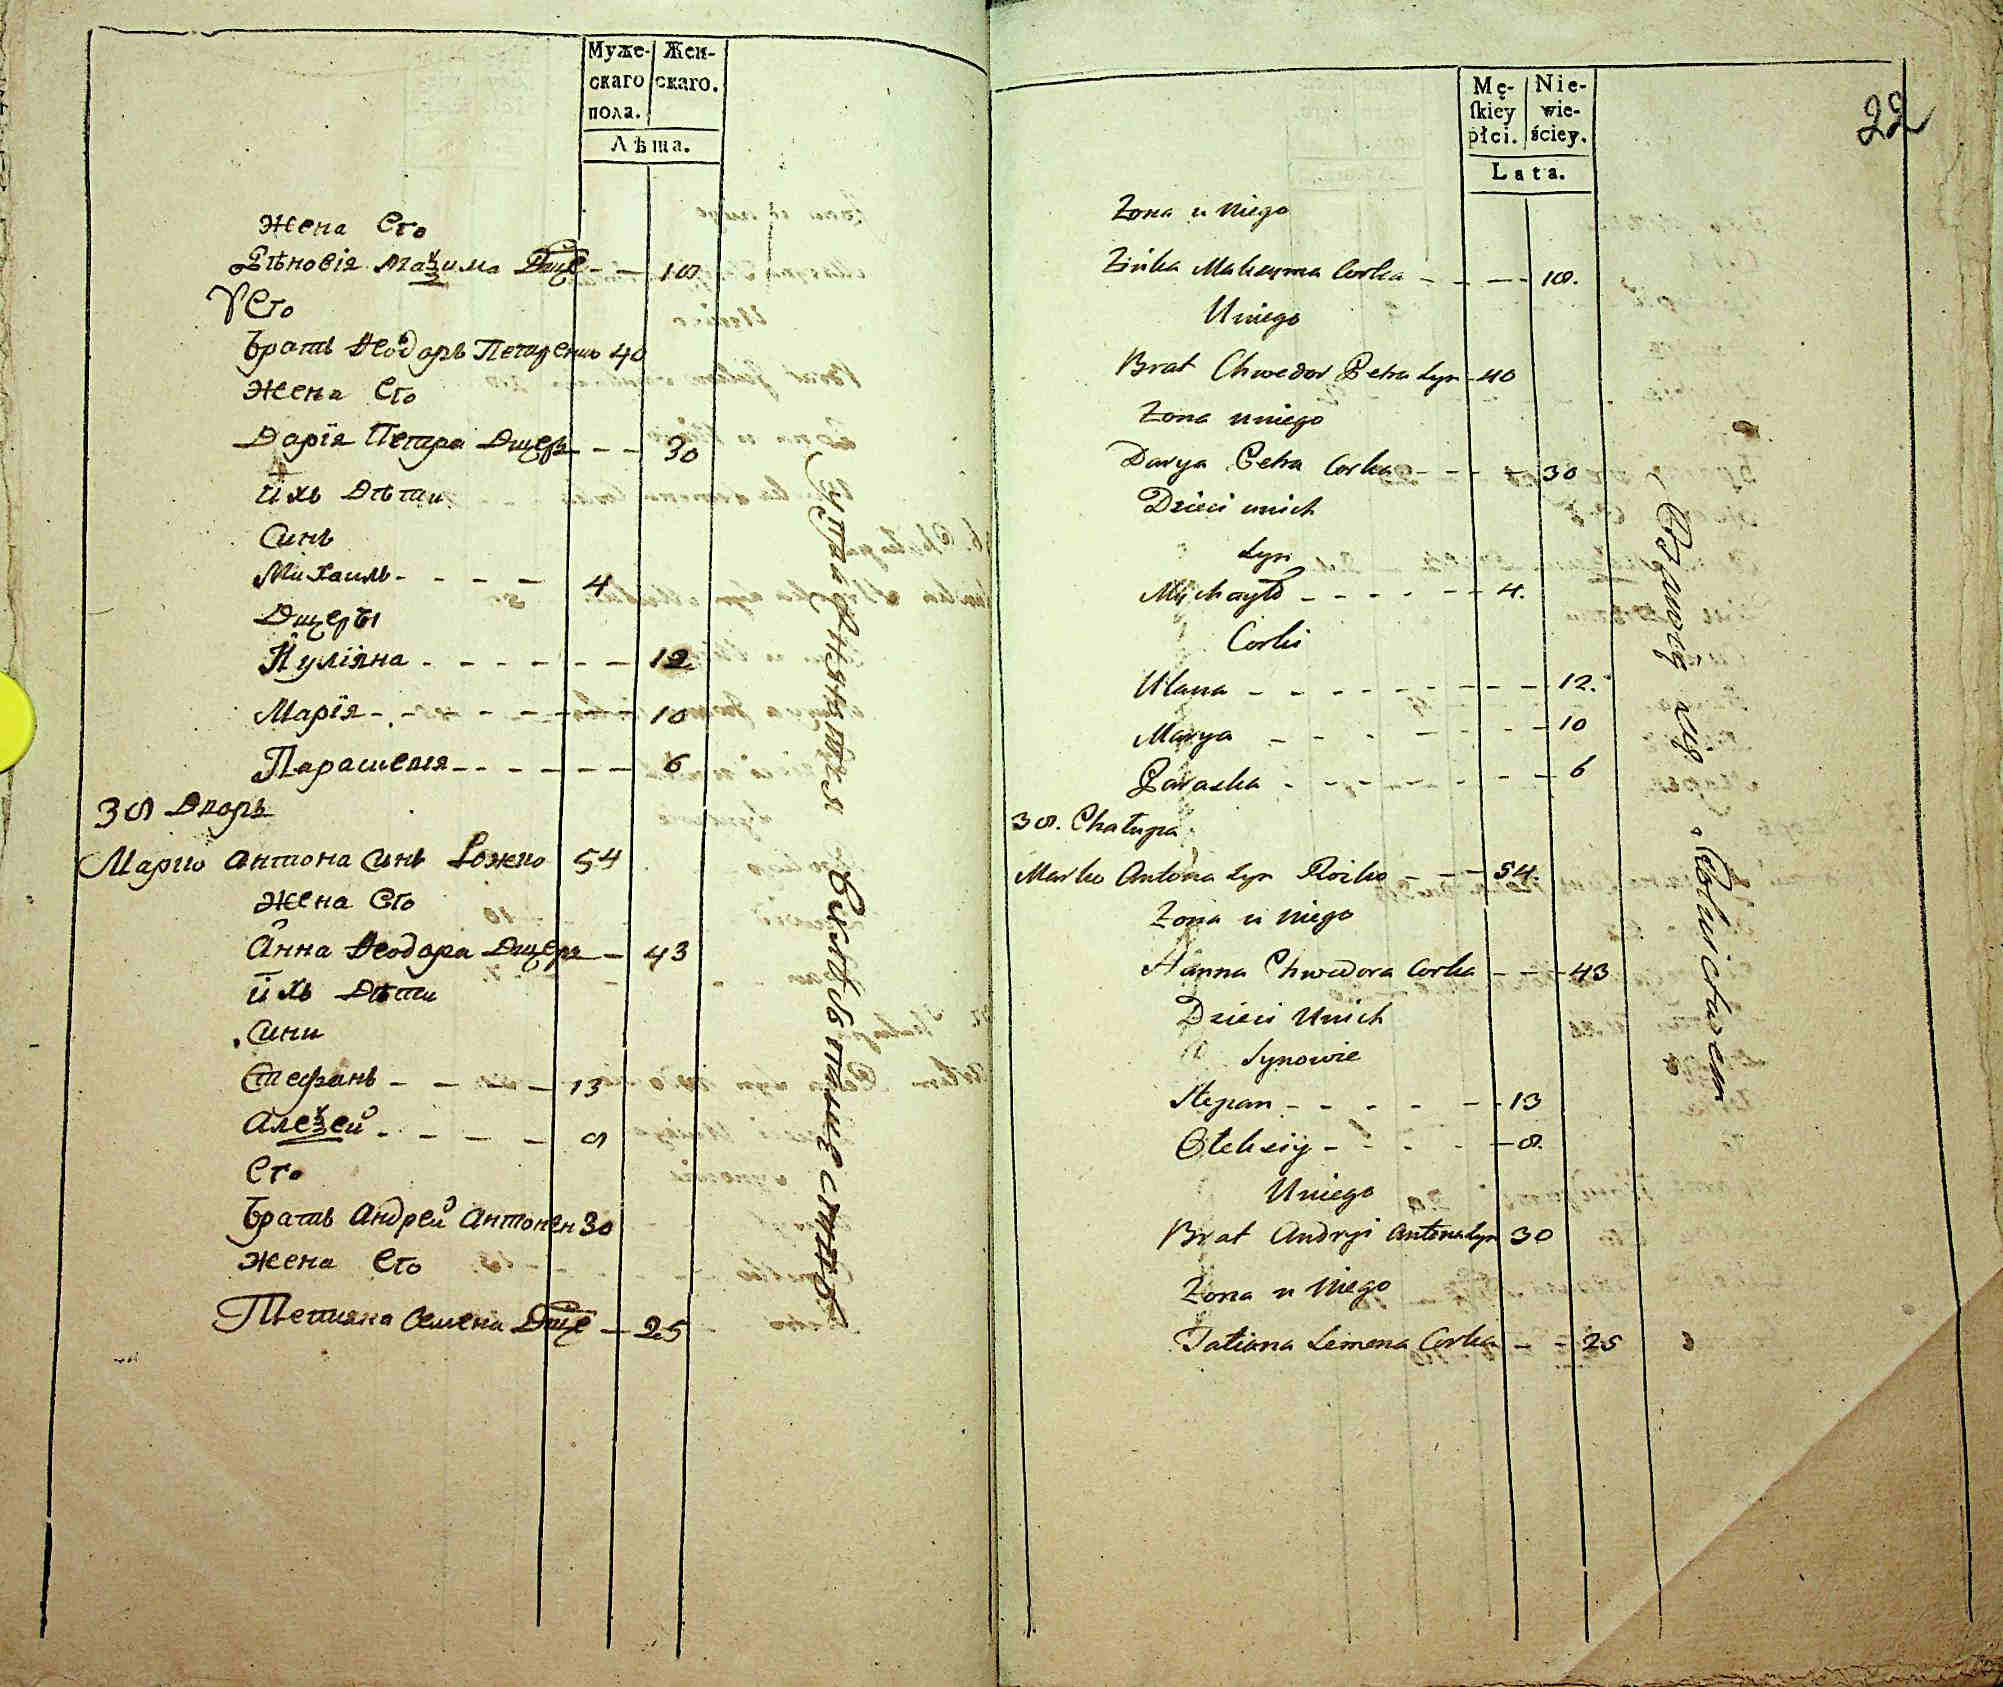 Муже-
скаго
пола.
Жен-
скаго.
Лѣта.
Жена Его
Зѣновія Маѯима Дще 18
У Его
Братъ Ѳеодоръ Петра Синъ 40
Жена Его
Дарія Петра Дщерь 30
Ихъ Дѣти
Синъ
Михаилъ 4
Дщеры
Иуліяна 12
Марія 10
Параскевія 6
38 Дворъ
Марко Антона Синъ Рожко 54
Жена Его
Анна Ѳеодора Дщерь 43
Ихъ Дѣти
Сини
Стефанъ 13
Алеѯей 8
Его
Братъ Андрей Антонен 30
Жена Его
Тетияна Семена Дще 25
Упражняются въ
Mę-
ſkiey
płci.
Nie-
wie-
ściey.
Lata.
22
Zona u Niego
Zinka Maksyma Corka 18.
U niego
Brat Chwedor Petra Syn 40
Zona u niego
Darya Petra Corka 30
Dzieci u nich
Syn
Mychayło 4.
Corki
Ulana 12.
Marya 10
Paraska 6
38. Chałupa
Marko Antona Syn Rożko 54.
Zona u Niego
Hanna Chwedora Corka 43
Dzieci U nich
Synowie
Stepan 13
Ołeksiy 8.
U niego
Brat Andryi Antona Syn 30
Zona u Niego
Tatiana Semena Corka 25
Baiwią się Rolnictwem